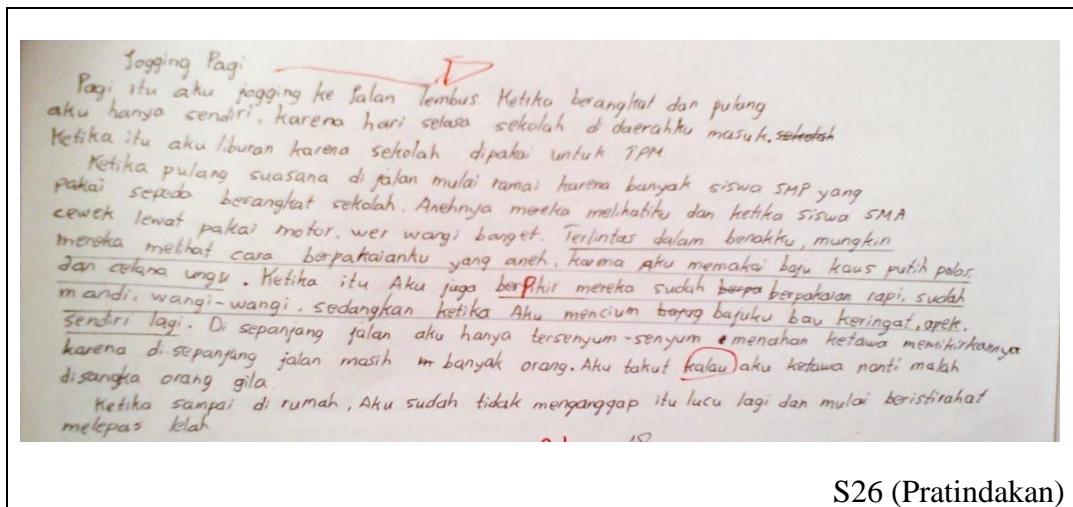 Jogging Pagi
Pagi itu aku jogging ke Jalan Tembus. Ketika berangkat dan pulang
aku hanya sendiri, karena hari selasa sekolah di daerahku masuk. sekolah
Ketika itu aku liburan karena sekolah dipakai untuk TPM
Ketika pulang suasana di jalan mulai ramai karena banyak siswa SMP yang
pakai sepeda berangkat sekolah. Anehnya mereka melihatiku dan ketika siswa SMA
cewek lewat pakai motor, wer wangi banget. Terlintas dalam benakku, mungkin
mereka melihat cara berpakaianku yang aneh, karena Aku memakai baju kaus putih polos,
dan celana ungu. Ketika itu Aku juga berpikir mereka sudah berpa berpakaian rapi, sudah
mandi, wangi-wangi, sedangkan ketika Aku mencium bajuku bau keringat, apek.
sendiri lagi. Di sepanjang jalan aku hanya tersenyum-senyum menahan ketawa memikirkannya
karena di sepanjang jalan masih banyak orang. Aku takut kalau aku ketawa nanti malah
disangka orang gila
Ketika sampai di rumah, Aku sudah tidak menganggap itu lucu lagi dan mulai beristirahat
melepas lelah
S26 (Pratindakan)